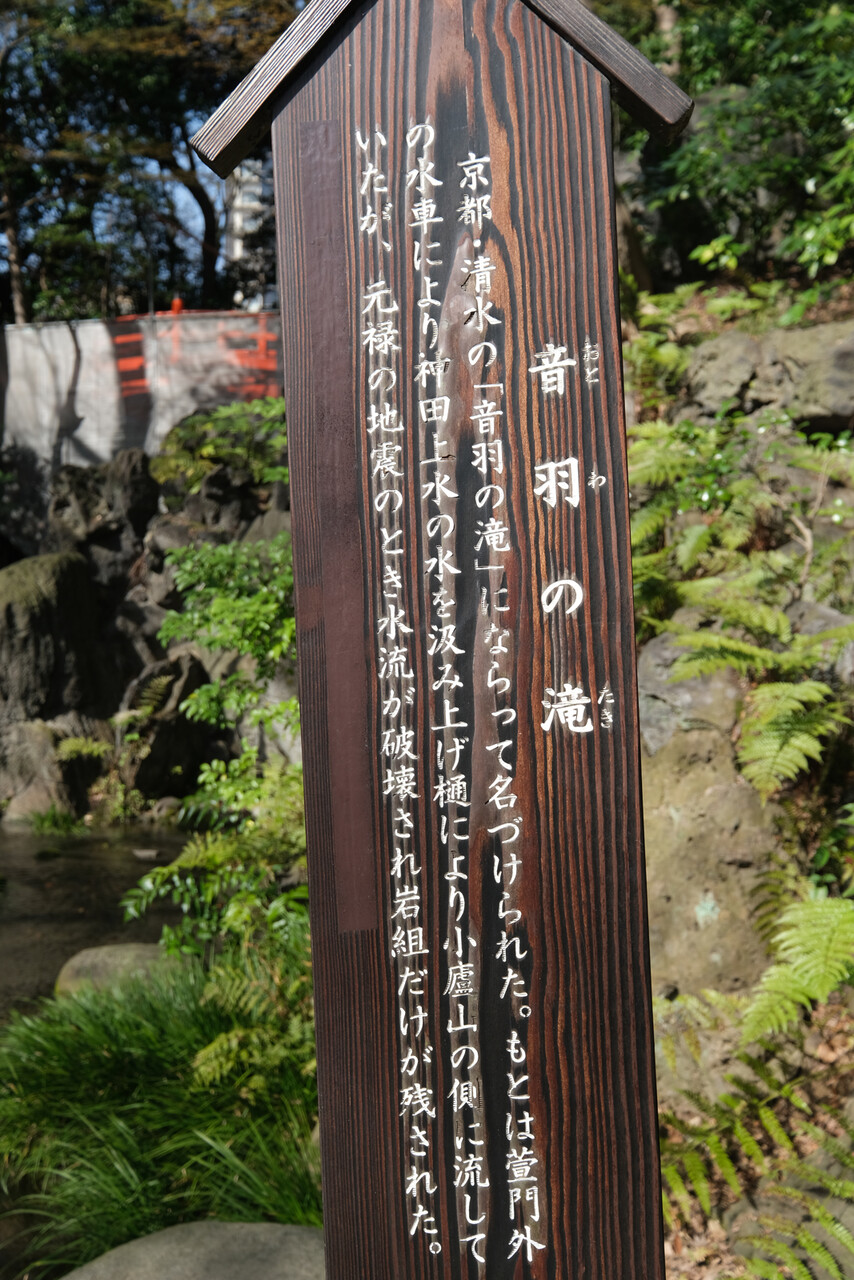 音羽の滝
おと わ たき
京都・清水の「音羽の滝」にならって名づけられた。もとは萱門外
の水車により神田上水の水を汲み上げ樋により小廬山の側に流して
いたが、元禄の地震のとき水流が破壊され岩組だけが残された。